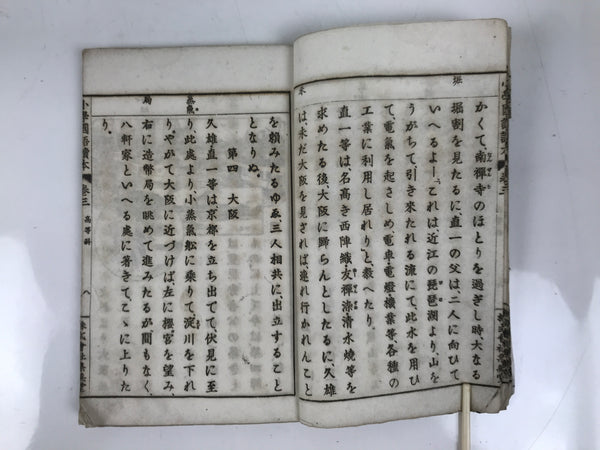 堀
かくて、南禪寺のほとりを過ぎし時大なる
堀割を見たるに直一の父は、二人に向ひて
いへるよー、「これは、近江の琵琶湖より、山を
うがちて引き來たれる流にて、此水を用ひ
て、電氣を起さしめ、電車、電燈、機業等、各種の
工業に利用し居れり」と教へたり。
直一等は、名高き西陣織、友禪染、清水燒等を
求めたる後、大阪に歸らんとしたるに、久雄
は、未だ大阪を見ざれば連れ行かれんこと
未
を頼みたるゆゑ、三人相共に、出立すること
となりぬ。
第四 大阪
久雄直一等は、京都を立ち出でて、伏見に至
蒸氣
り、此處より小蒸氣船に乘りて、淀川を下れ
りやがて大阪に近づけば左に櫻宮を望み、
局
右に造幣局を眺めて進みたるが間もなく、
八軒家といへる處に着きて、こゝに上りた
り。
小學國語讀本 卷三 高等科
八